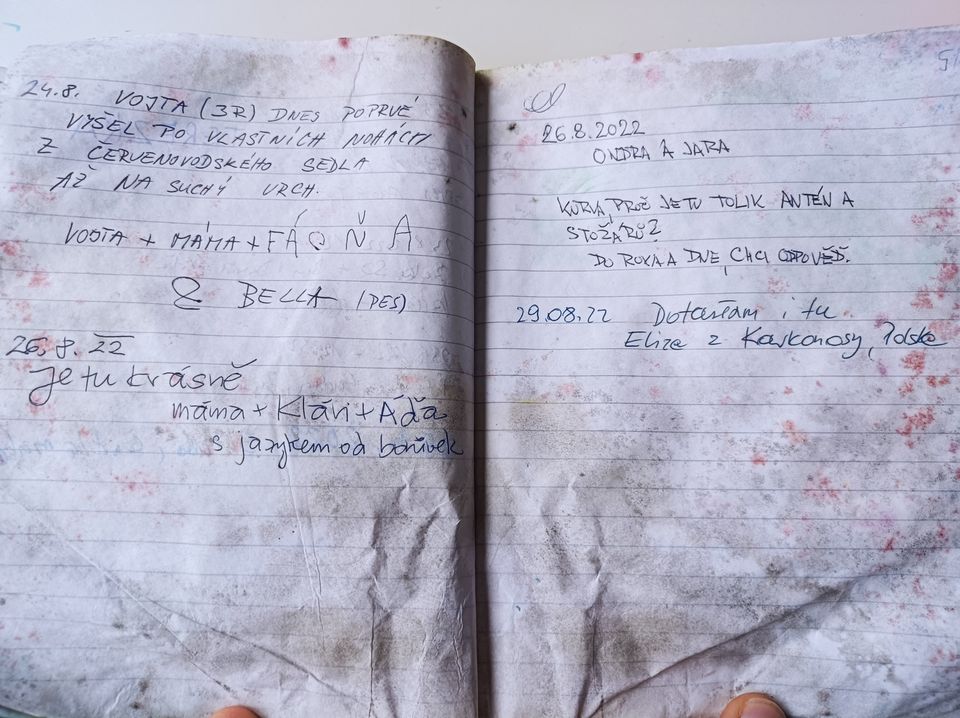 24.8. VOJTA (3R) DNES POPRVÉ
VYŠEL PO VLASTNÍCH NOHÁCH
Z ČERVENOVODSKÉHO SEDLA
AŽ NA SUCHÝ VRCH.
VOJTA + MÁMA + FÁ Ň A
& BELLA (PES)
26. 8. 22
Je tu krásně
máma + Klári + Áďa
s jazykem od borůvek
26.8.2022
ONDRA A JARA
KURVA, PROČ JE TU TOLIK ANTÉN A
STOŽÁRŮ?
DO ROKA A DNE, CHCI ODPOVĚĎ.
29.08.22 Dotarłam i tu
Eliza z Karkonoszy, Polska